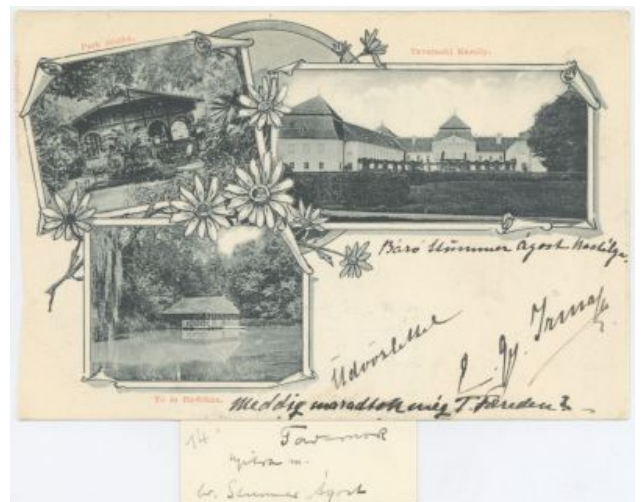 Park részlet.
Tavarnoki Kastély.
Báró Stummer Ágost kastélya.
Üdvözlettel
Irma
Tó és fürdőház.
Meddig maradtok még T. Füreden?
14
Tavarnok
Nyitra m.
br. Stummer Ágost